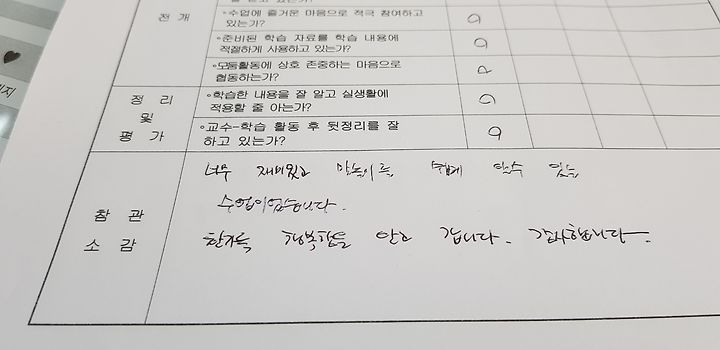 전 개
◦수업에 즐거운 마음으로 적극 참여하고
있는가?
◦준비된 학습 자료를 학습 내용에
적절하게 사용하고 있는가?
◦모둠활동에 상호 존중하는 마음으로
협동하는가?
정 리
및
평 가
◦학습한 내용을 잘 알고 실생활에
적용할 줄 아는가?
◦교수-학습 활동 후 뒷정리를 잘
하고 있는가?
참 관
소 감
너무 재미있고 말놀이를 쉽게 알수 있는
수업이었습니다.
한가득 행복함을 안고 갑니다. 감사합니다